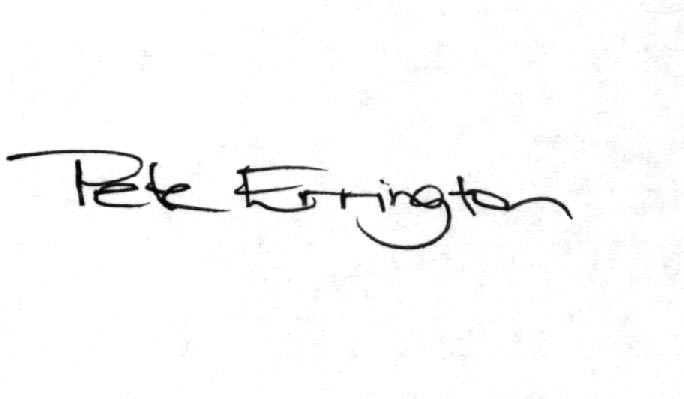 Pete Errington